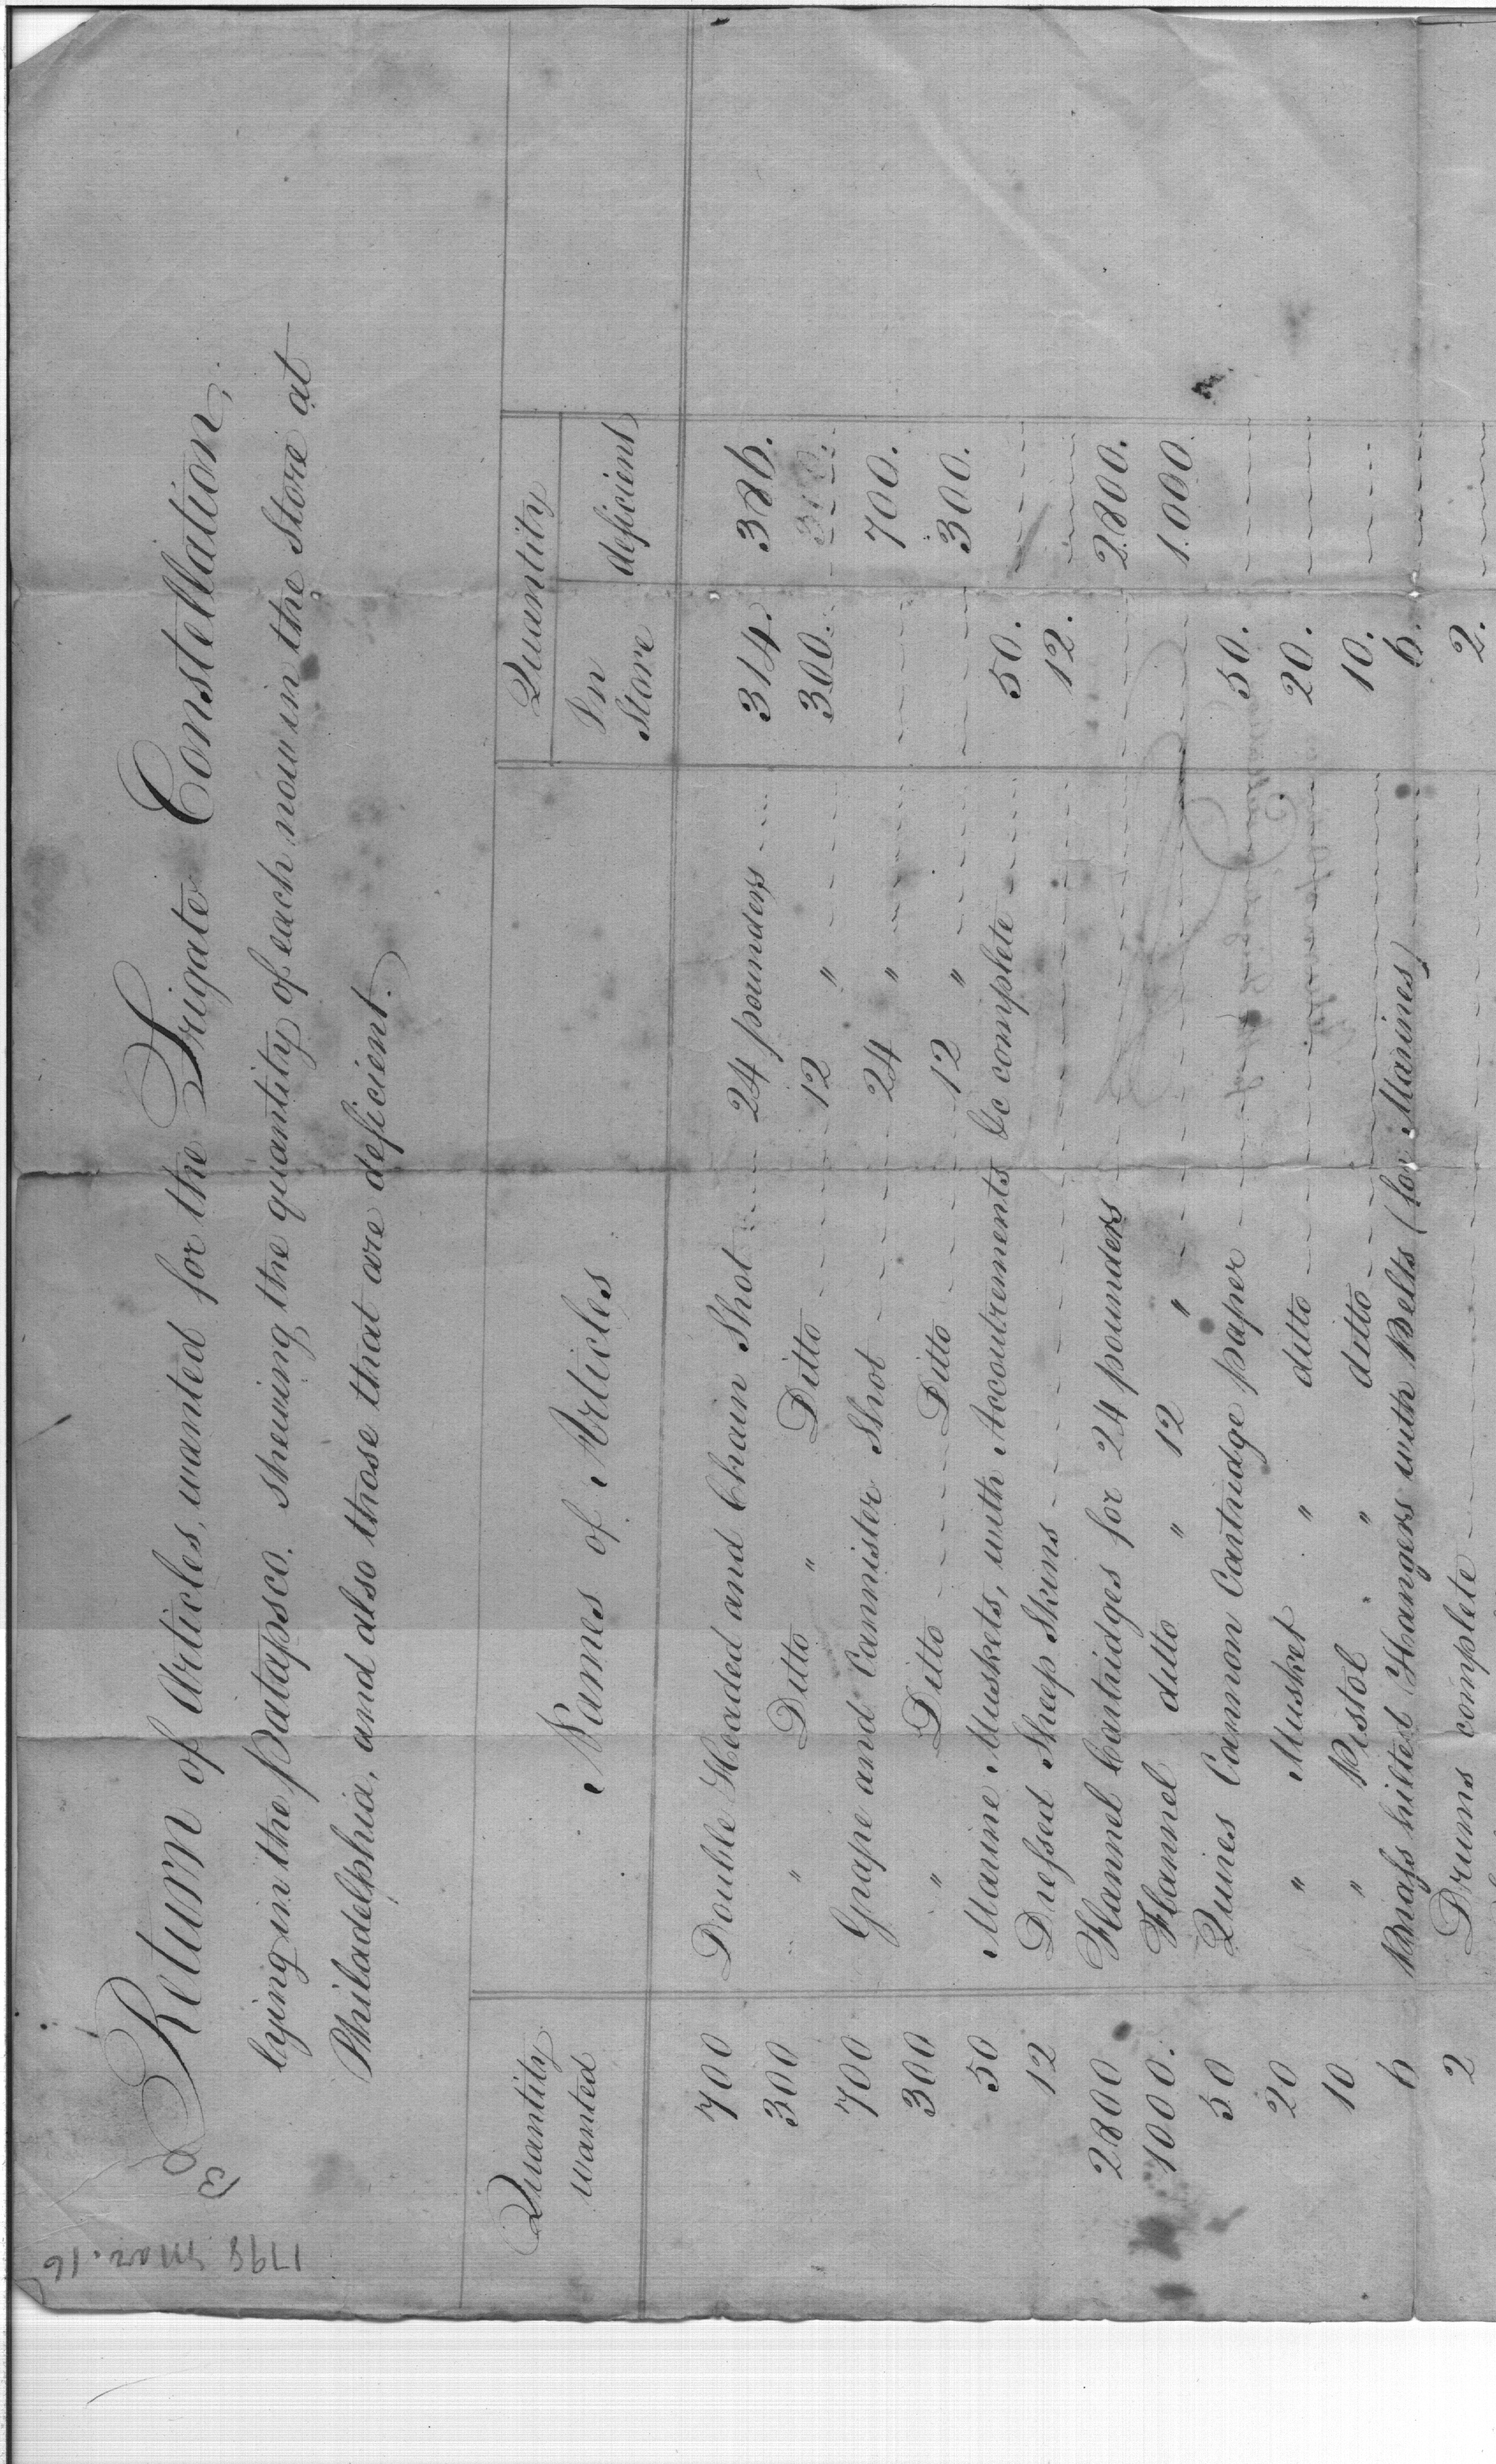 1798 Mar. 16
Return of Articles, wanted for the Frigate Constellation,
lying in the Patapsco. shewing the quantity of each now in the Store at
Philadelphia, and also those that are deficient.
Quantity wanted Names of Articles Quantity In Store deficient
700 Double Headed and Chain Shot 24 pounders 314. 386.
300 " Ditto " Ditto 12 " 300.
700 Grape and Cannister Shot 24 " 700.
300 " Ditto Ditto 12 " 300.
50 Marine Muskets, with Accoutrements &c complete 50.
12 Dressed Sheep Skins 12.
2800 Flannel Cartridges for 24 pounders 2800.
1000. Flannel ditto " 12 " 1000
50 Quires Cannon Cartridge paper 50.
20 " Musket " ditto 20.
10 " Pistol " ditto 10.
6 Brass hilted Hangers with Belts (for Marines) 6.
2 Drums complete 2.